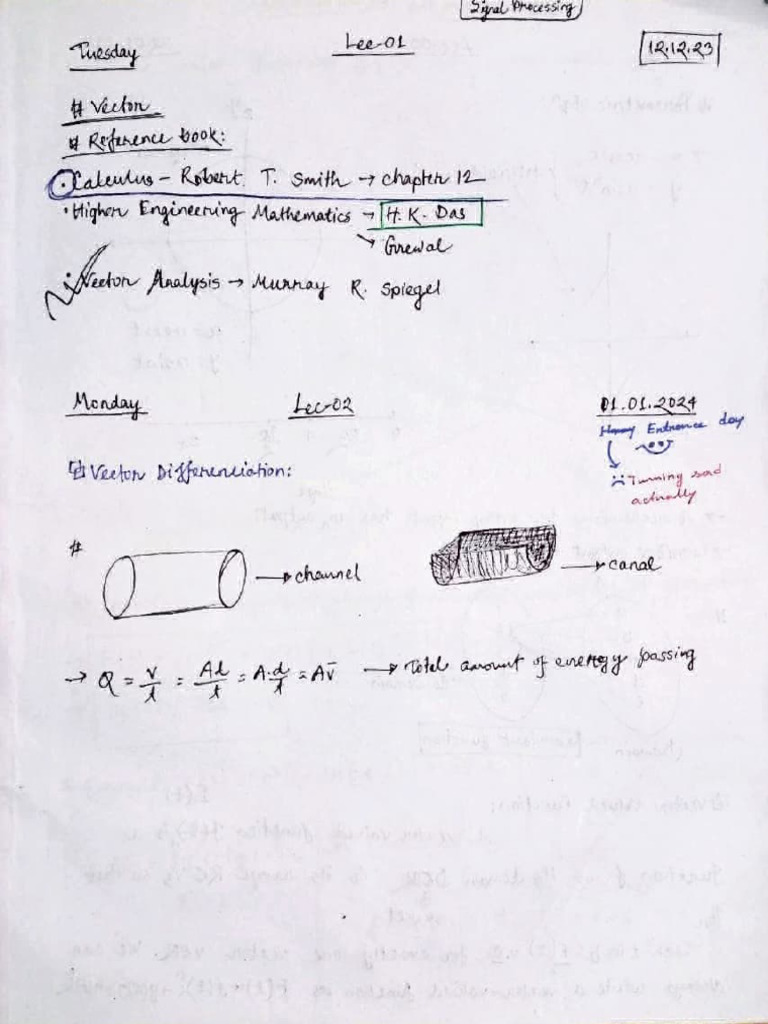 Signal Processing
Tuesday
Lec-01
12.12.23
# Vector
# Reference book:
· Calculus - Robert T. Smith → chapter 12
· Higher Engineering Mathematics → H. K. Das
→ Grewal
· Vector Analysis → Murray R. Spiegel
Monday
Lec-02
01.01.2024
Entrance day
Turning sad
actually
Vector Differentiation:
#
→ channel
→ canal
→ Q = v/t = Ad/t = A·d/t = Av̄ → Total amount of energy passing